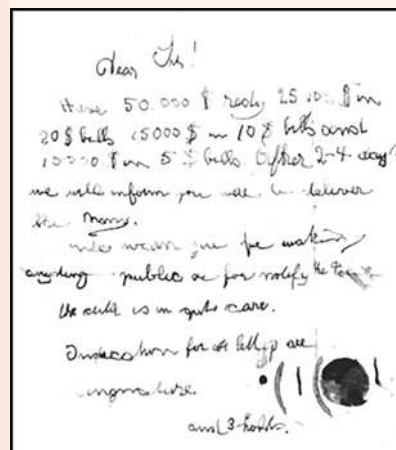 Dear Sir!
Have 50.000 $ redy 25 $ in
20 $ bills 15000 $ in 10 $ bills and
10000 $ in 5 $ bills After 2-4 days
we will inform you to deliver
the Mony.
warn you for making
anyding public or for notify the
the child is in gute care.
Indication for all are
singnature
and 3 hohls.